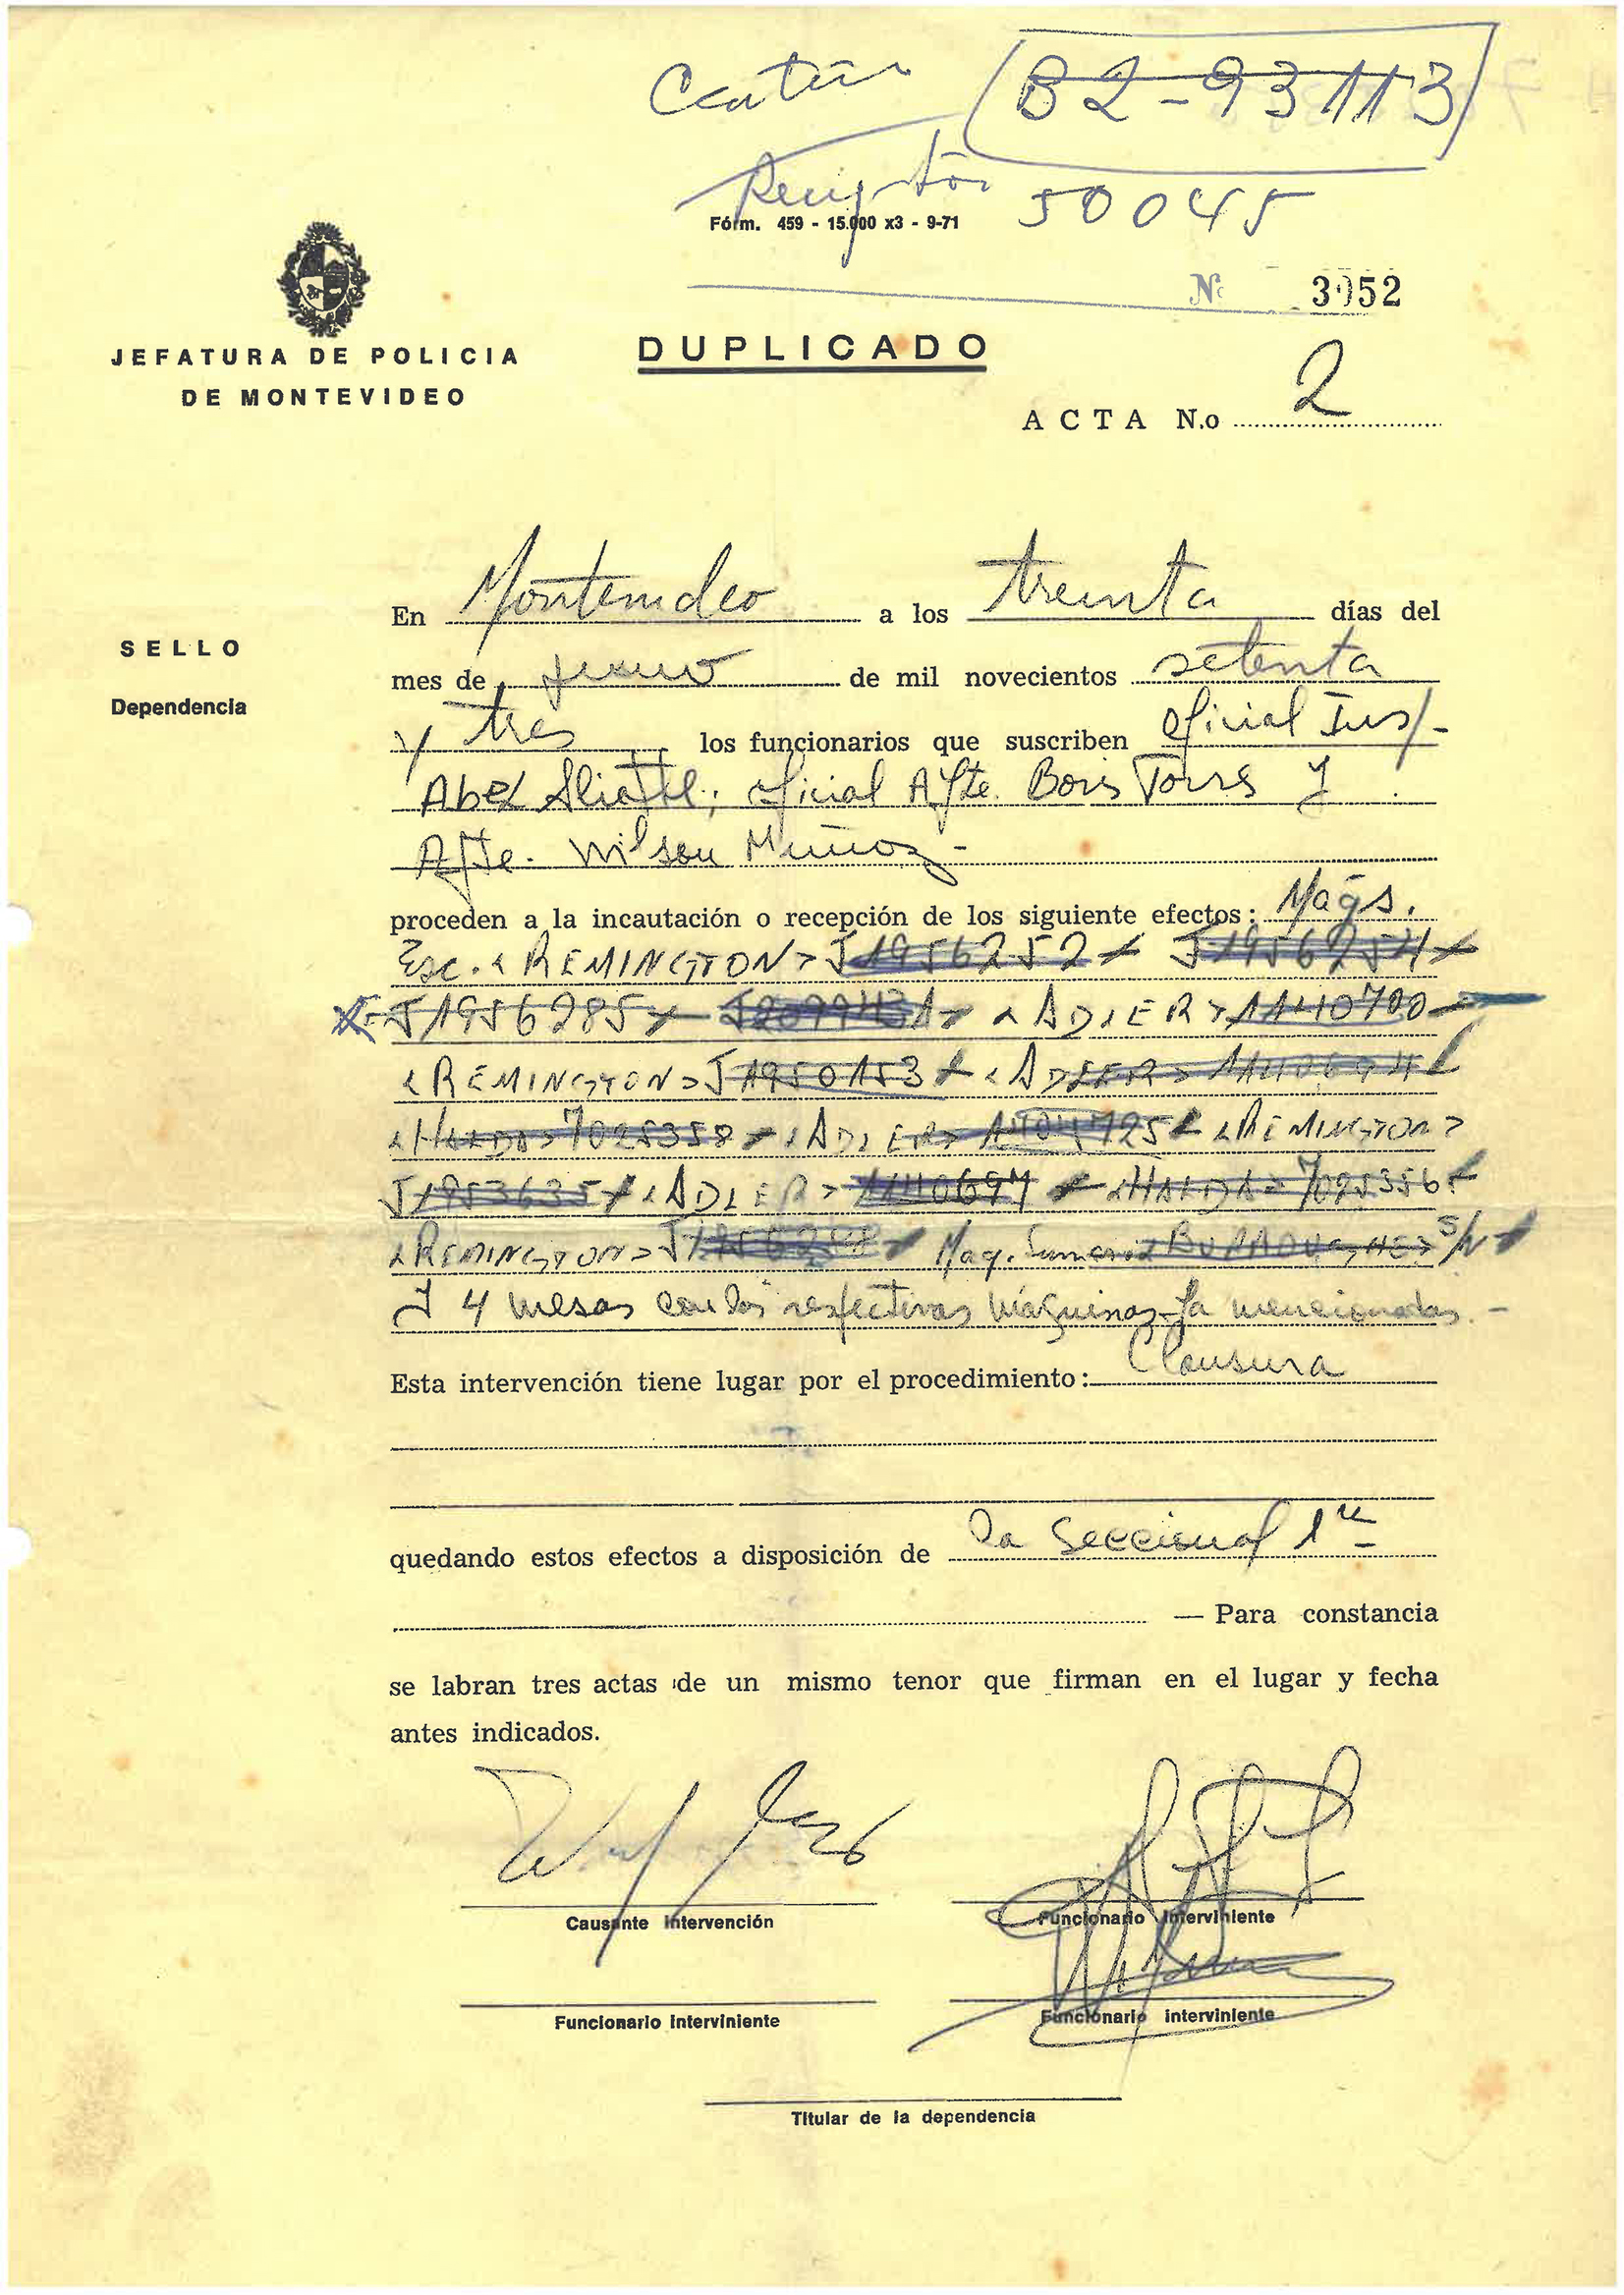 B2-93113
50045
Fórm. 459 - 15.000 x3 - 9-71
No 3052
JEFATURA DE POLICIA
DE MONTEVIDEO
DUPLICADO
ACTA N.o 2
SELLO
Dependencia
En Montevideo a los treinta días del
mes de junio de mil novecientos setenta
y tres los funcionarios que suscriben oficial Insp.
Abel oficial Afte. Boris Torres y
Afte. Wilson Muñoz -
proceden a la incautación o recepción de los siguiente efectos: Maqs.
Esc. "REMINGTON" J1956252 J1956254
J1956285 "ADLER" 1140700
"REMINGTON" J1950153 "ADLER"
"HALDA" 7025358 "ADLER" "REMINGTON"
J1953635 "ADLER" 1140697 "HALDA" 7025356
"REMINGTON" Maq. S/N
y 4 mesas con las respectivas máquinas ya mencionadas. -
Esta intervención tiene lugar por el procedimiento: Clausura
quedando estos efectos a disposición de la Seccional 1ra
— Para constancia
se labran tres actas de un mismo tenor que firman en el lugar y fecha
antes indicados.
Causante Intervención
Funcionario Interviniente
Funcionario Interviniente
Funcionario interviniente
Titular de la dependencia